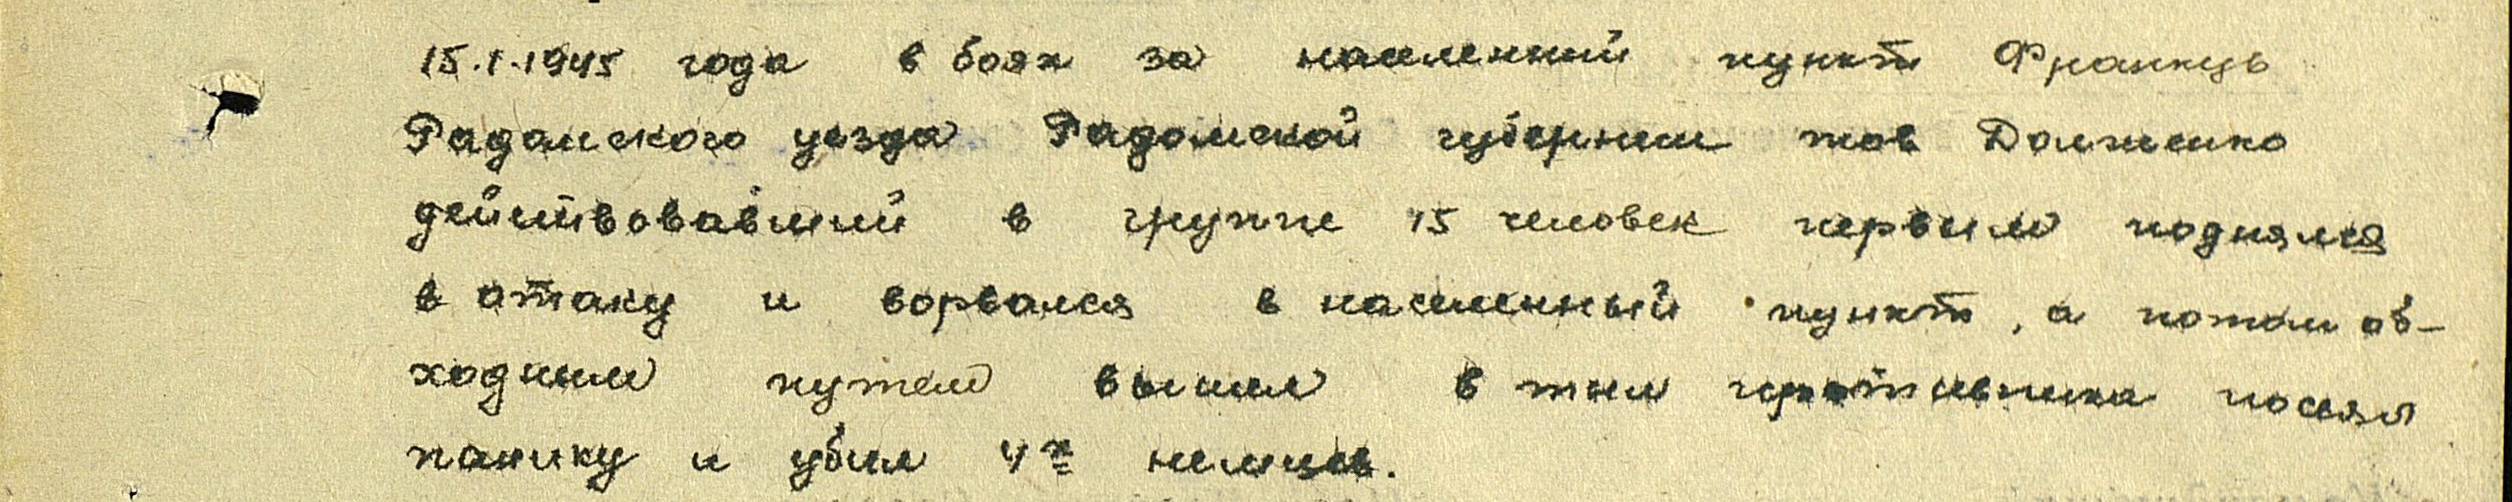 15.1.1945 года в боях за населенний пункт Францув
Радомского уезда Радомской губернии тов Долженко
действовавший в группе 15 человек первым поднялся
в атаку и ворвался в населенный пункт, а потом об-
ходным путем вышел в тыл противника посеял
панику и убил 4х немцев.